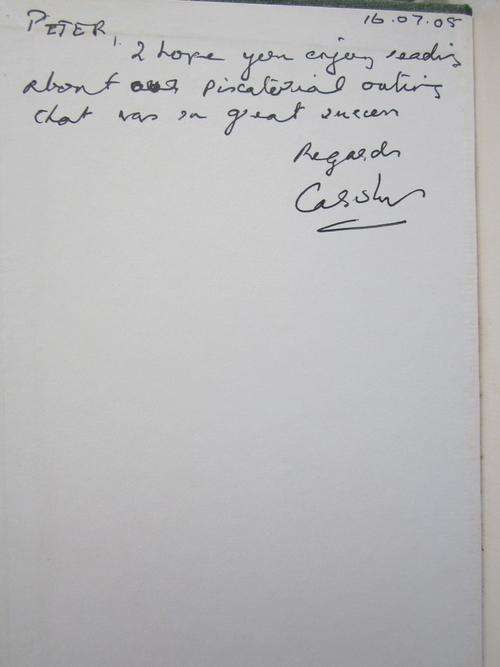 PETER, 16.07.08
I hope you enjoy reading
about our piscatorial outing
that was so great success
Regards